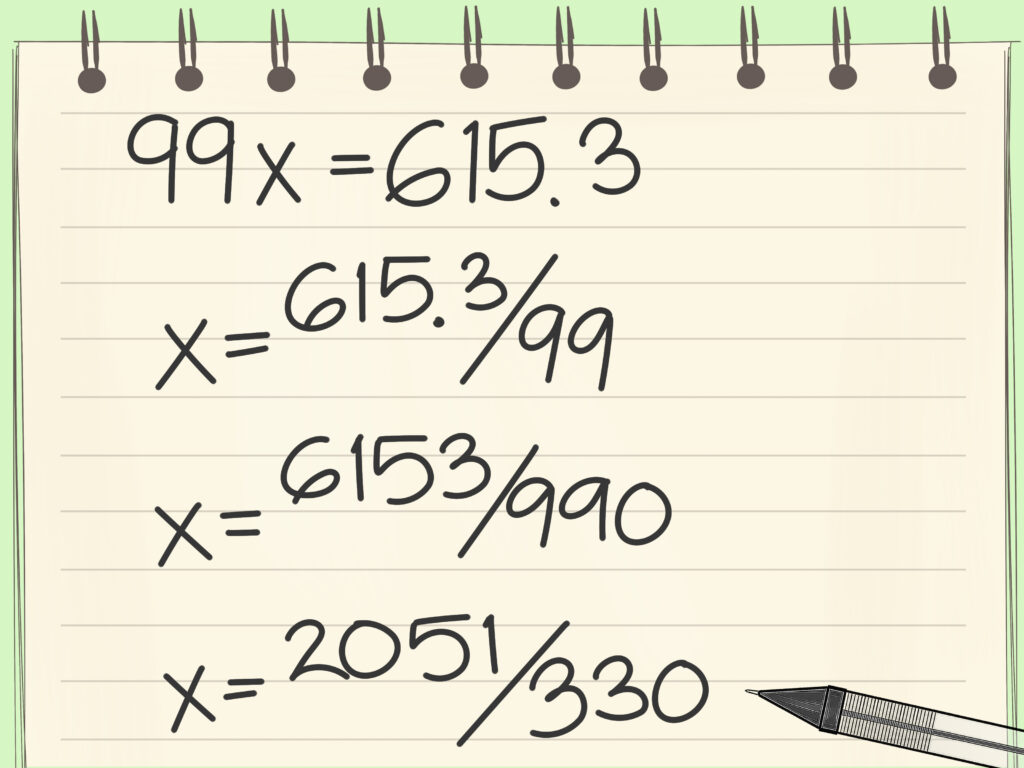 99x = 615.3
x = 615.3/99
x = 6153/990
x = 2051/330